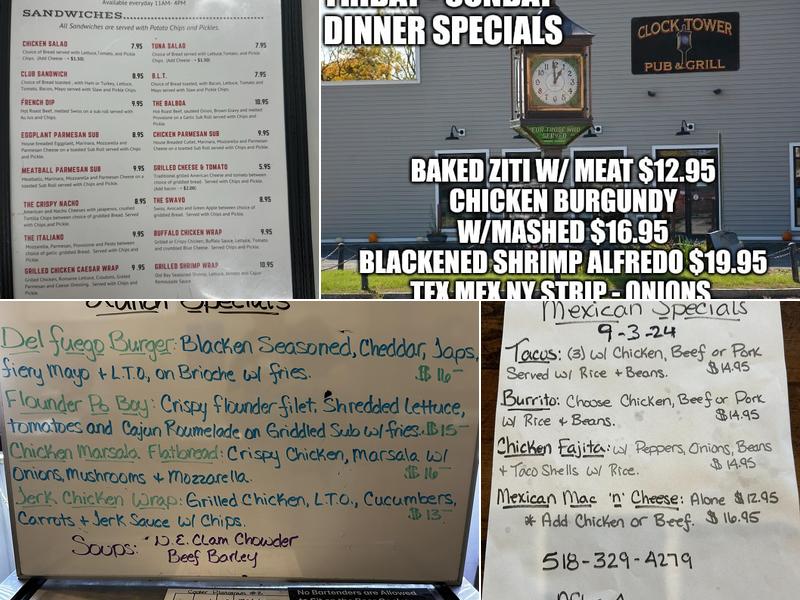 Available everyday 11AM- 4PM
SANDWICHES
All Sandwiches are served with Potato Chips and Pickles.
CHICKEN SALAD 7.95
Choice of Bread served with Lettuce, Tomato, and Pickle
Chips. (Add Cheese - + $1.50)
CLUB SANDWICH 8.95
Choice of Bread toasted, with Ham or Turkey, Lettuce,
Tomato, Bacon, Mayo served with Slaw and Pickle Chips.
FRENCH DIP 9.95
Hot Roast Beef, melted Swiss on a sub roll served with
Au Jus and Chips.
EGGPLANT PARMESAN SUB 8.95
House breaded Eggplant, Marinara, Mozzarella and
Parmesan Cheese on a toasted Sub Roll served with Chips
and Pickle.
MEATBALL PARMESAN SUB 9.95
Meatballs, Marinara, Mozzarella and Parmesan Cheese on a
toasted Sub Roll served with Chips and Pickle.
THE CRISPY NACHO 8.95
American and Nacho Cheeses with jalapenos, crushed
Tortilla Chips between choice of griddled Bread. Served
with Chips and Pickle.
THE ITALIANO 9.95
Mozzarella, Parmesan, Provolone and Pesto between
choice of garlic griddled Bread. Served with Chips and
Pickle.
GRILLED CHICKEN CAESAR WRAP 9.95
Grilled Chicken, Romaine Lettuce, Croutons, Grated
Parmesan and Caesar Dressing. Served with Chips and
Pickle.
TUNA SALAD 7.95
Choice of Bread served with Lettuce, Tomato, and Pickle
Chips. (Add Cheese - + $1.50)
B.L.T. 7.95
Choice of Bread toasted, with Bacon, Lettuce, Tomato and
Mayo served with Slaw and Pickle Chips.
THE BALBOA 10.95
Hot Roast Beef, sauteed Onion, Brown Gravy and melted
Provolone on a Garlic Sub Roll served with Chips and
Pickle.
CHICKEN PARMESAN SUB 9.95
House Breaded Cutlet, Marinara, Mozzarella and Parmesan
Cheese on a toasted Sub Roll served with Chips and
Pickle.
GRILLED CHEESE & TOMATO 5.95
Traditional grilled American Cheese and tomato between
choice of griddled bread. Served with Chips and Pickle.
(Add bacon - + $2.00)
THE SWAVO 8.95
Swiss, Avocado and Green Apple between choice of
griddled Bread. Served with Chips and Pickle.
BUFFALO CHICKEN WRAP 9.95
Grilled or Crispy Chicken, Buffalo Sauce, Lettuce, Tomato
and crumbled Blue Cheese. Served with Chips and Pickle.
GRILLED SHRIMP WRAP 10.95
Old Bay Seasoned Shrimp, Lettuce, Tomato and Cajun
Remoulade Sauce
FRIDAY - SUNDAY
DINNER SPECIALS
CLOCK TOWER
PUB & GRILL
FOR THOSE WHO
SERVED
BAKED ZITI W/ MEAT $12.95
CHICKEN BURGUNDY
W/MASHED $16.95
BLACKENED SHRIMP ALFREDO $19.95
TEX MEX NY STRIP - ONIONS
Lunch Specials
Del fuego Burger: Blacken Seasoned, Cheddar, Japs,
fiery Mayo + L.T.O, on Brioche w/ fries. $16
Flounder Po Boy: Crispy flounder filet, Shredded Lettuce,
tomatoes and Cajun Roumelade on Griddled Sub w/ fries. $15
Chicken Marsala Flatbread: Crispy Chicken, Marsala w/
Onions, Mushrooms + Mozzarella. $16
Jerk Chicken Wrap: Grilled Chicken, L.T.O., Cucumbers,
Carrots + Jerk Sauce w/ Chips. $13
Soups: N.E. Clam Chowder
Beef Barley
No Bartenders are Allowed
Mexican Specials
9-3-24
Tacos: (3) w/ Chicken, Beef or Pork
Served w/ Rice + Beans. $14.95
Burrito: Choose Chicken, Beef or Pork
w/ Rice + Beans. $14.95
Chicken Fajita: w/ Peppers, Onions, Beans
+ Taco Shells w/ Rice. $14.95
Mexican Mac 'n' Cheese: Alone $12.95
* Add Chicken or Beef. $16.95
518-329-4279